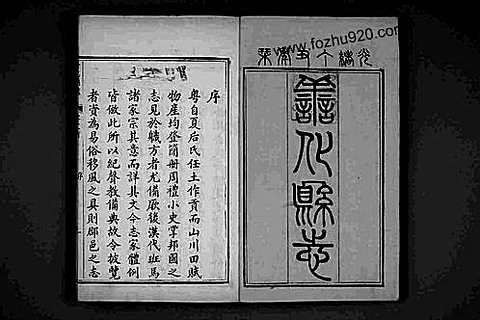 www.fozhu920.com
善化縣志
序
粵自夏后氏任土作貢而山川田賦
物産均登簡册周禮小史掌邦國之
志見於職方者尤備厥後漢代班馬
諸家宗其意而詳其文今志家體例
皆倣此所以紀聲教備典故令披覽
者資為易俗移風之具則郡邑之志